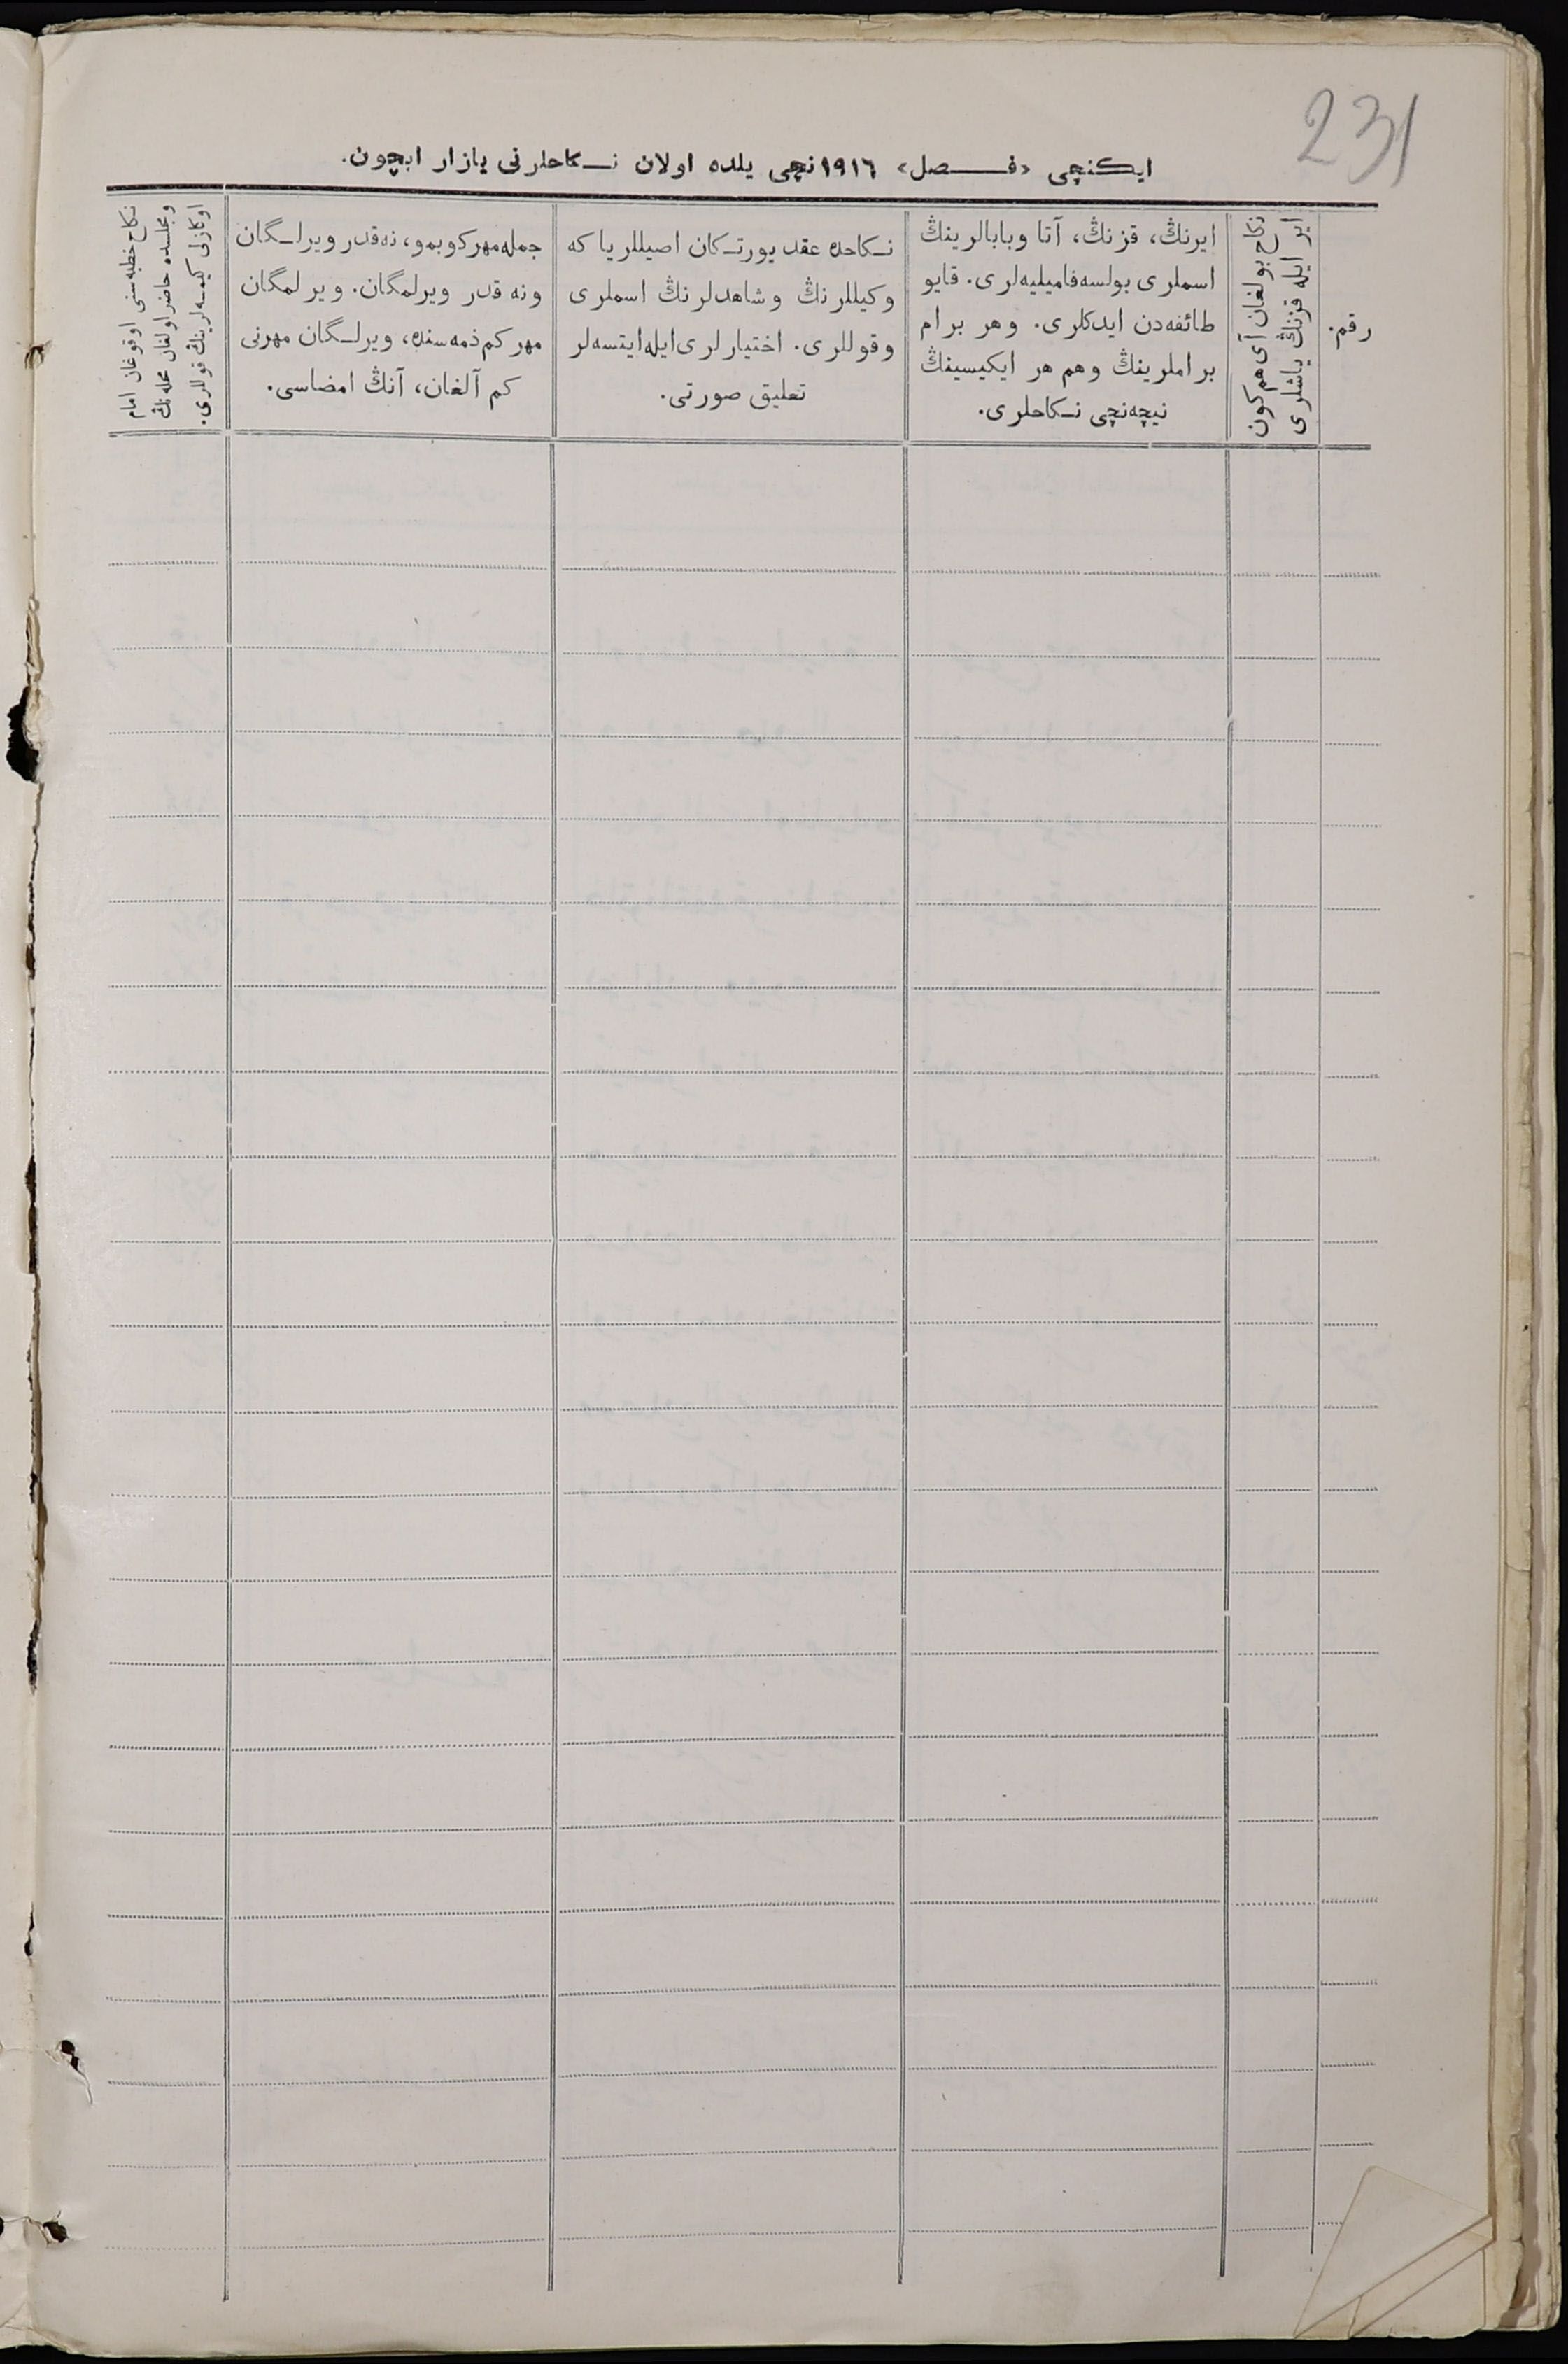 231
ایکنچی «فصل» ١٩١٦نچی یلده اولان نکاحلرنی یازار ایچون.
رقم.
نکاح بولغان آی هم کون
ایر ایله قزنڭ یاشلری
ایرنڭ، قزنڭ، آتا وبابالرینڭ
اسملری بولسه فامیلیه‌لری. قایو
طائفه‌دن ایدکلری. وهر برام
براملرینڭ وهم هر ایکیسینڭ
نیچه‌نچی نکاحلری.
نکاحده عقد یورتکان اصیللر یا که
وکیللرنڭ وشاهدلرنڭ اسملری
وقوللری. اختیارلری ایله ایتسه‌لر
تعلیق صورتی.
جمله مهر کوبمو، نه‌قدر ویرلگان
ونه قدر ویرلمگان. ویرلمگان
مهر کم ذمه‌سنده، ویرلگان مهرنی
کم آلغان، آنڭ امضاسی.
نکاح خطبه‌سنی اوقوغان امام
ومجلسده حاضر اولغان محله‌نڭ
اوکازلی کیمسه‌لرینڭ قوللری.